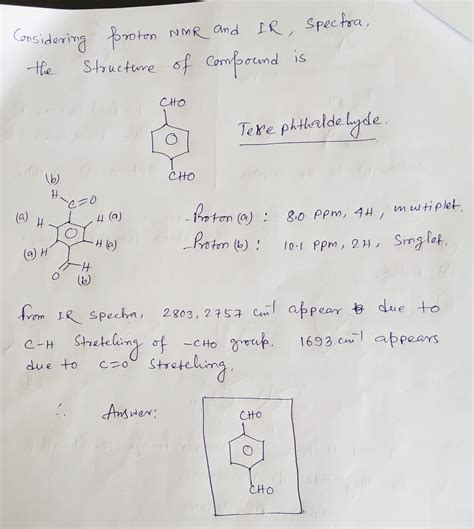 Considering proton NMR and IR, Spectra,
the Structure of Compound is
CHO
CHO
Terephthaldehyde.
(b)
H
C=O
(a) H
H (a)
(a) H
H (a)
H
O
(b)
-Proton (a) : 8.0 ppm, 4H, multiplet.
-Proton (b) : 10.1 ppm, 2H, Singlet.
from IR Spectra, 2803, 2757 cm-1 appear due to
C-H Stretching of -CHO group. 1693 cm-1 appears
due to C=O Stretching.
∴ Answer:
CHO
CHO